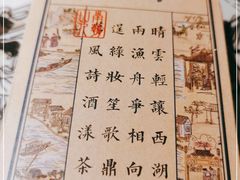 晴雲輕讓西湖
雨漁舟爭相向
綠妝笙歌鼎
風詩酒漾茶